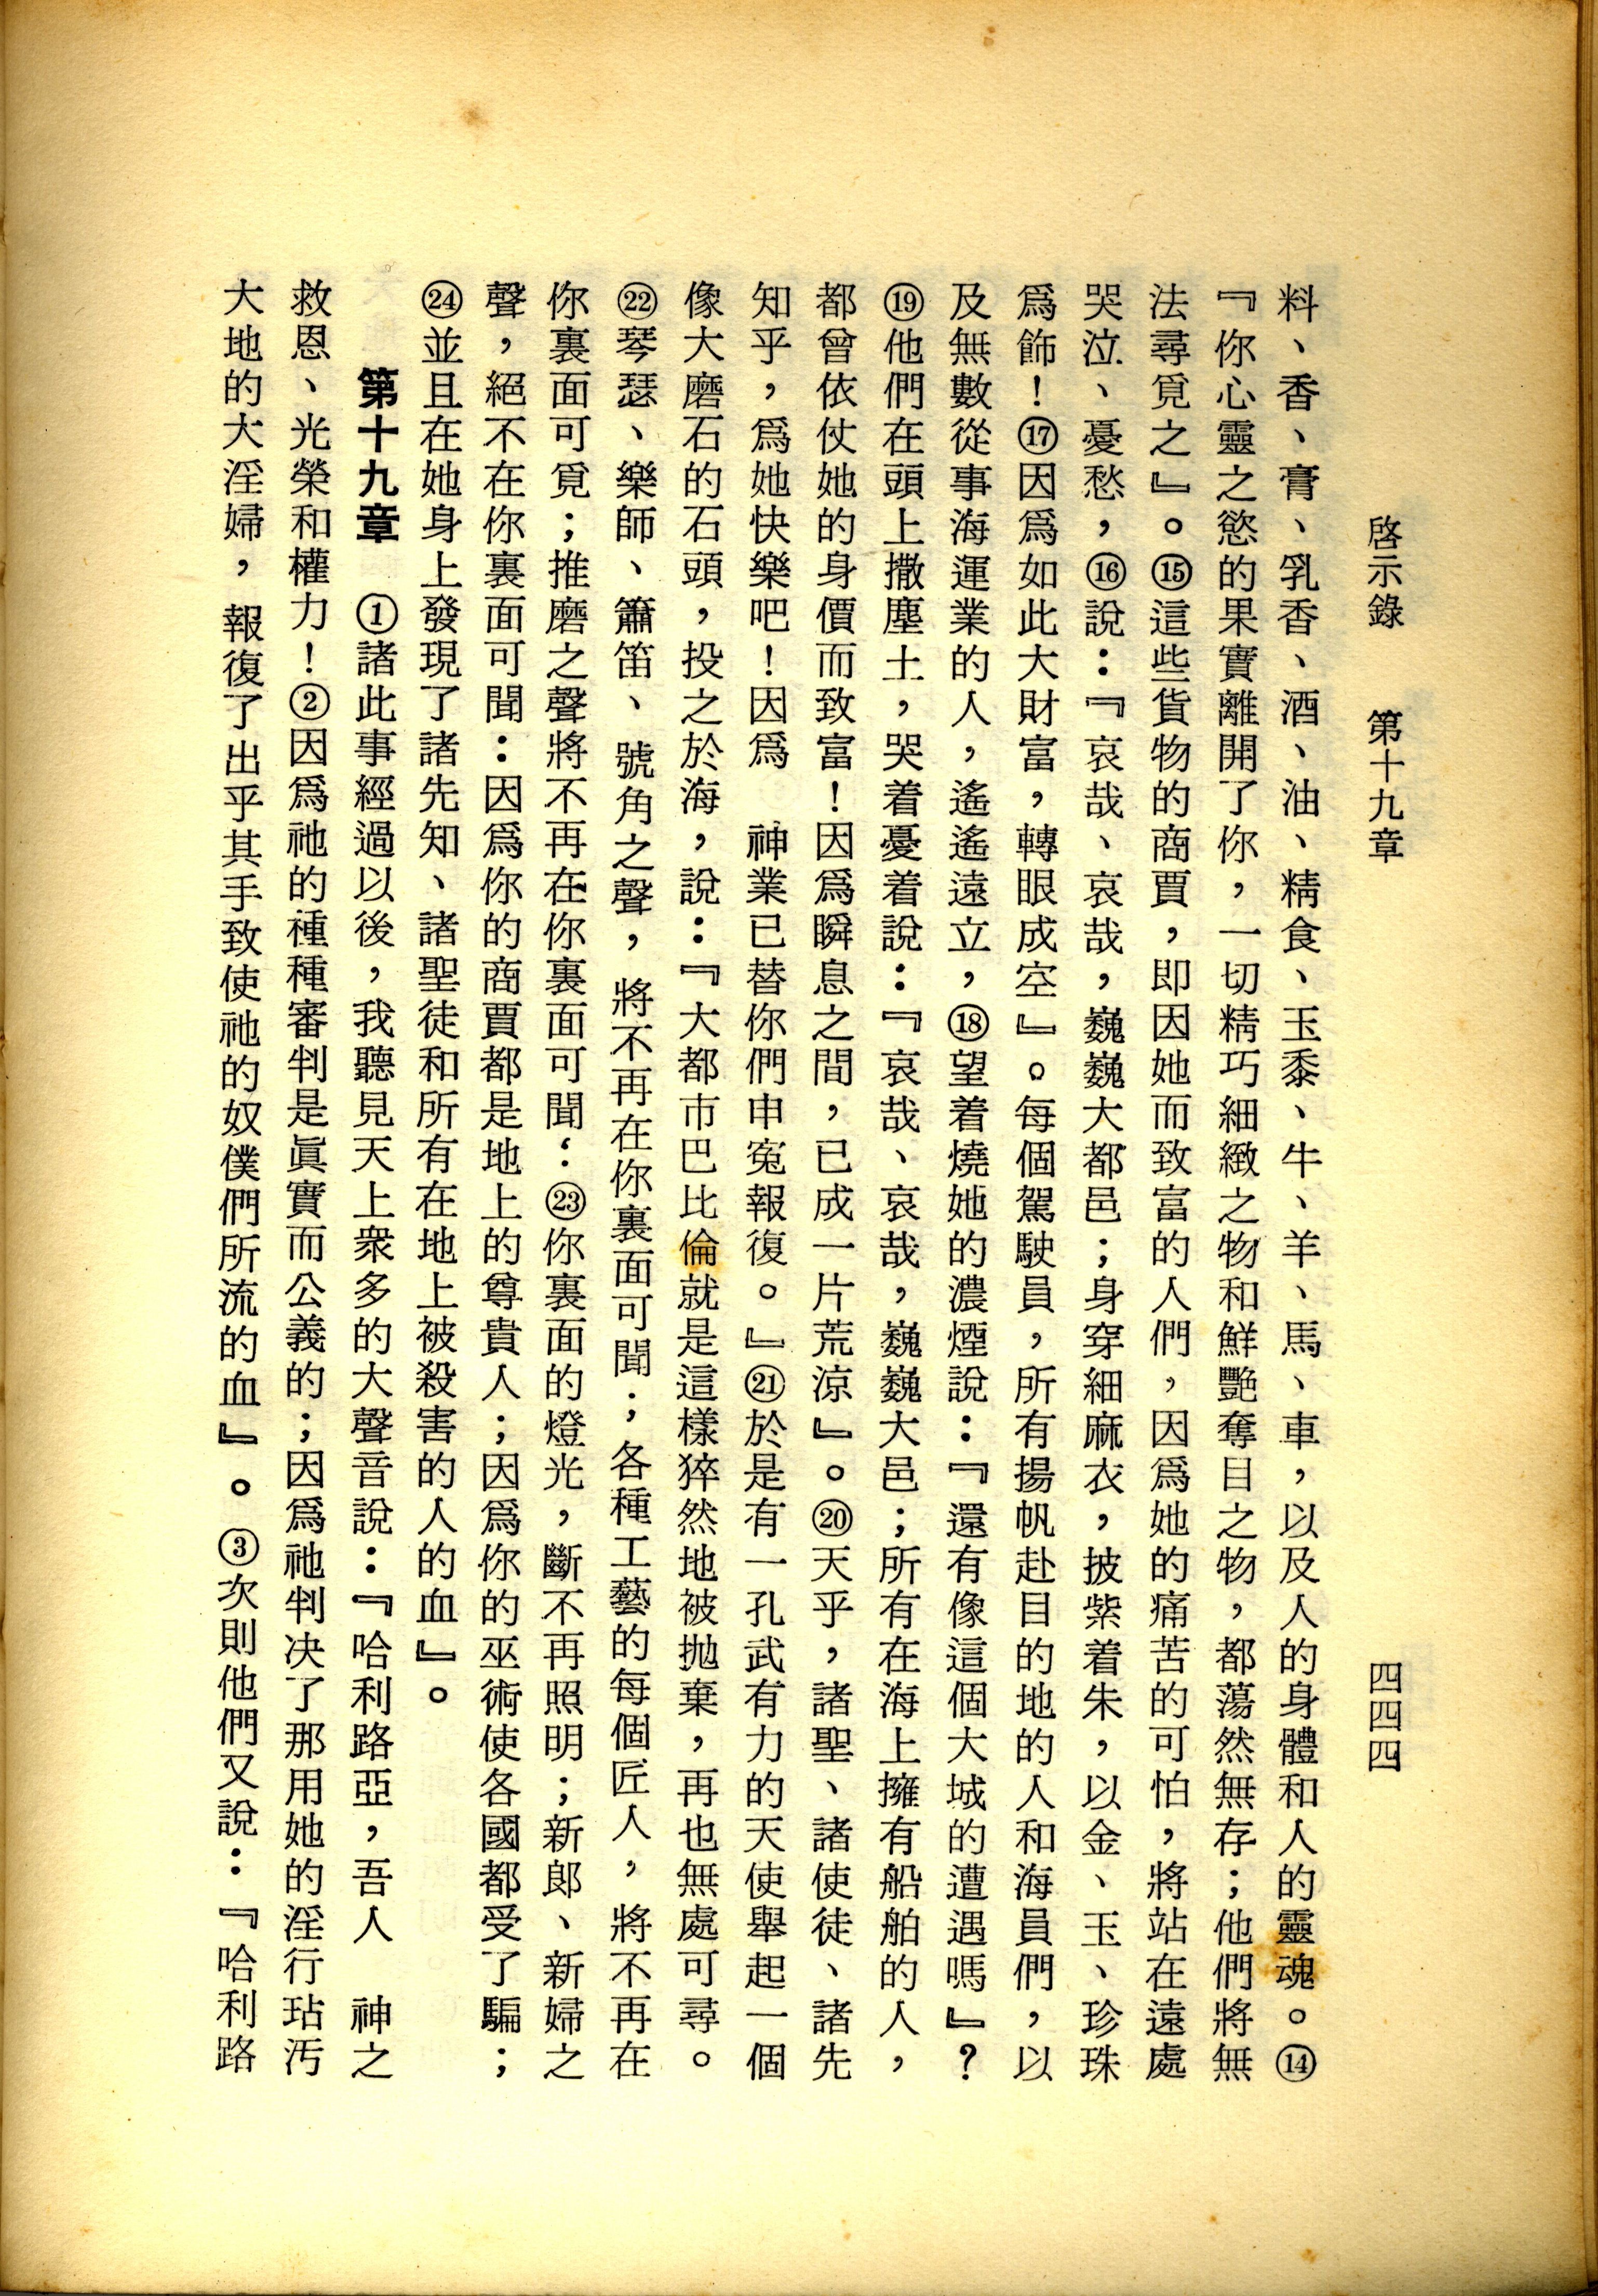 啓示錄　第十九章　四四四
料、香、膏、乳香、酒、油、精食、玉黍、牛、羊、馬、車，以及人的身體和人的靈魂。⑭
『你心靈之慾的果實離開了你，一切精巧細緻之物和鮮艷奪目之物，都蕩然無存；他們將無
法尋覓之』。⑮這些貨物的商賈，即因她而致富的人們，因爲她的痛苦的可怕，將站在遠處
哭泣、憂愁，⑯說：『哀哉、哀哉，巍巍大都邑；身穿細麻衣，披紫着朱，以金、玉、珍珠
爲飾！⑰因爲如此大財富，轉眼成空』。每個駕駛員，所有揚帆赴目的地的人和海員們，以
及無數從事海運業的人，遙遙遠立，⑱望着燒她的濃煙說：『還有像這個大城的遭遇嗎』？
⑲他們在頭上撒塵土，哭着憂着說：『哀哉、哀哉，巍巍大邑；所有在海上擁有船舶的人，
都曾依仗她的身價而致富！因爲瞬息之間，已成一片荒涼』。⑳天乎，諸聖、諸使徒、諸先
知乎，爲她快樂吧！因爲　神業已替你們申寃報復。』㉑於是有一孔武有力的天使舉起一個
像大磨石的石頭，投之於海，說：『大都市巴比倫就是這樣猝然地被拋棄，再也無處可尋。
㉒琴瑟、樂師、簫笛、號角之聲，將不再在你裏面可聞；各種工藝的每個匠人，將不再在
你裏面可覓；推磨之聲將不再在你裏面可聞：㉓你裏面的燈光，斷不再照明；新郎、新婦之
聲，絕不在你裏面可聞：因爲你的商賈都是地上的尊貴人；因爲你的巫術使各國都受了騙；
㉔並且在她身上發現了諸先知、諸聖徒和所有在地上被殺害的人的血』。
第十九章　①諸此事經過以後，我聽見天上衆多的大聲音說：『哈利路亞，吾人　神之
救恩、光榮和權力！②因爲祂的種種審判是眞實而公義的；因爲祂判决了那用她的淫行玷汚
大地的大淫婦，報復了出乎其手致使祂的奴僕們所流的血』。③次則他們又說：『哈利路